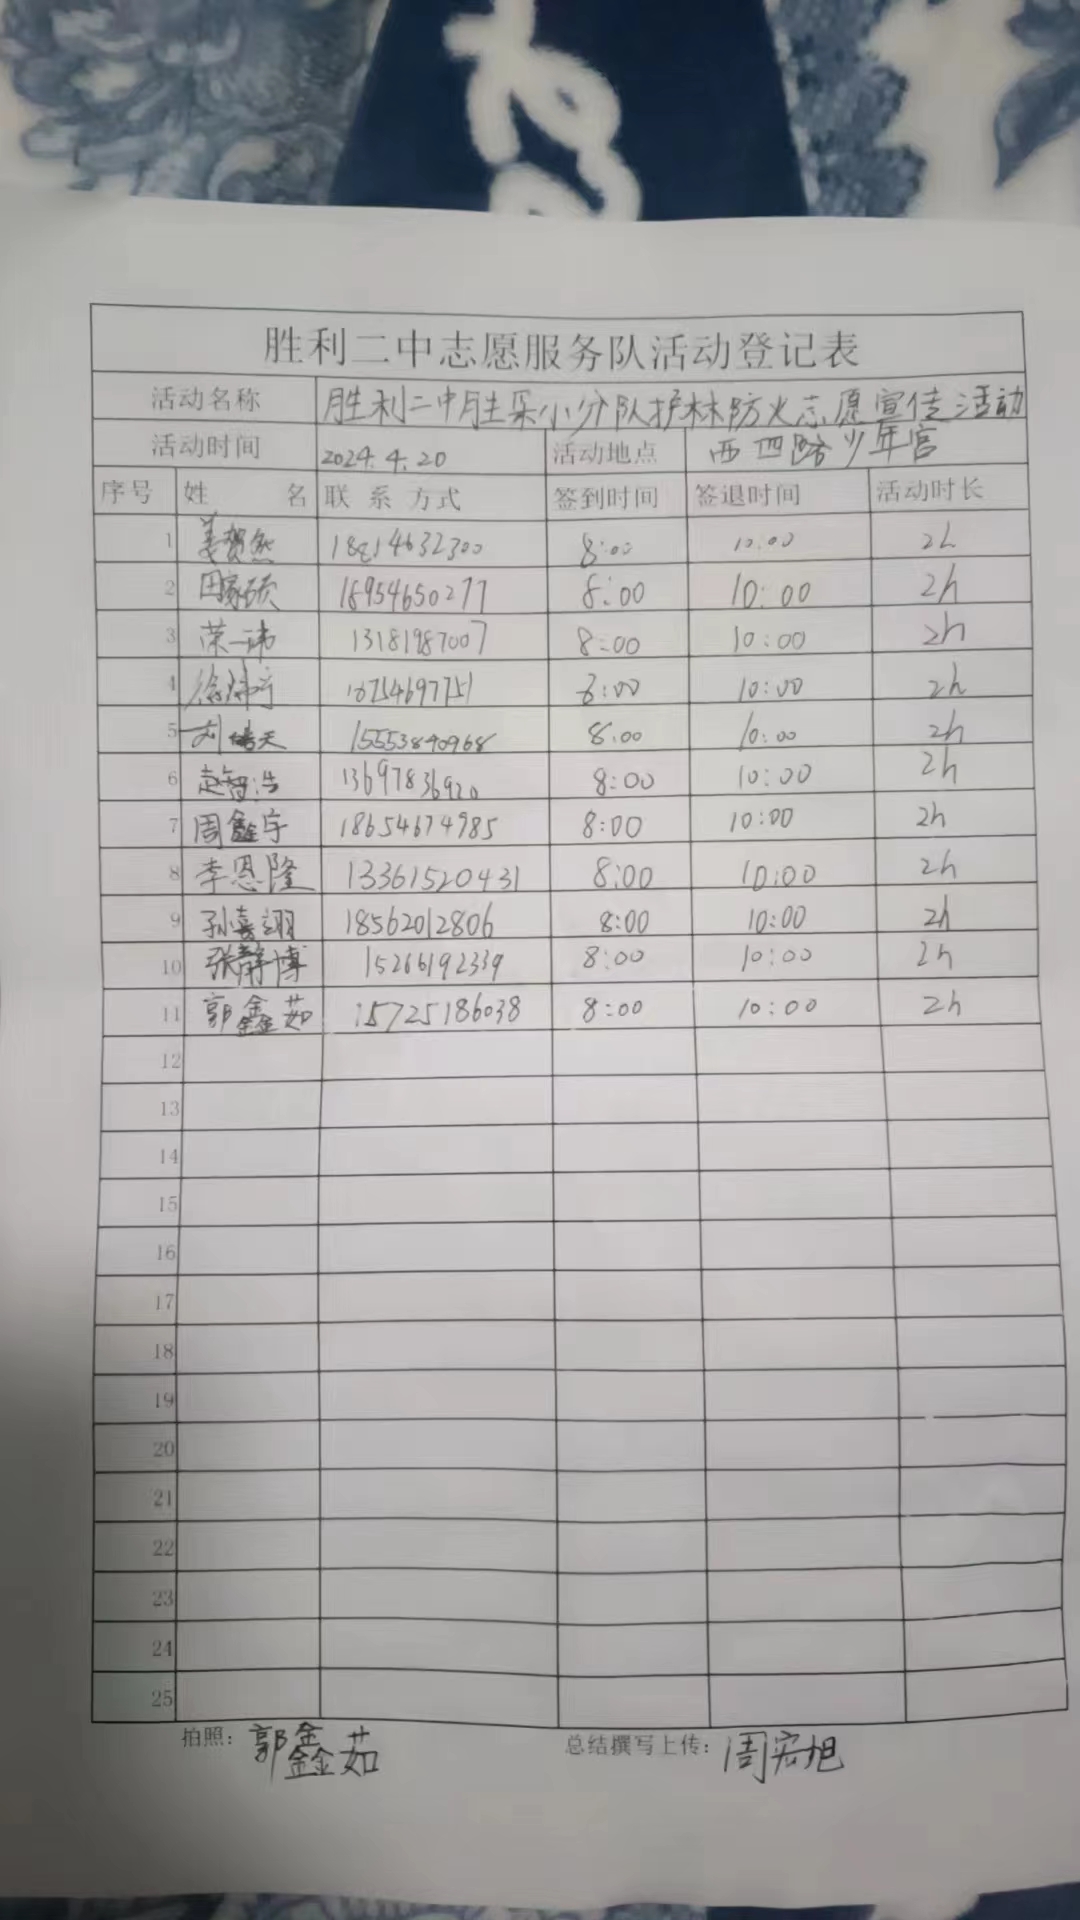 胜利二中志愿服务队活动登记表
活动名称 胜利二中胜采小分队护林防火志愿宣传活动
活动时间 2024.4.20 活动地点 西四路少年宫
序号 姓 名 联 系 方式 签到时间 签退时间 活动时长
1 姜贺然 8:00 10:00 2h
2 田家硕 18954650277 8:00 10:00 2h
3 荣一玮 13181987007 8:00 10:00 2h
4 8:00 10:00 2h
5 15553840968 8:00 10:00 2h
6 赵智浩 13697836920 8:00 10:00 2h
7 周鑫宇 18654674985 8:00 10:00 2h
8 李恩隆 13361520431 8:00 10:00 2h
9 孙嘉翊 18562012806 8:00 10:00 2h
10 张静博 15266192339 8:00 10:00 2h
11 郭鑫茹 15725186038 8:00 10:00 2h
12
13
14
15
16
17
18
19
20
21
22
23
24
25
拍照: 郭鑫茹 总结撰写上传: 周宏旭